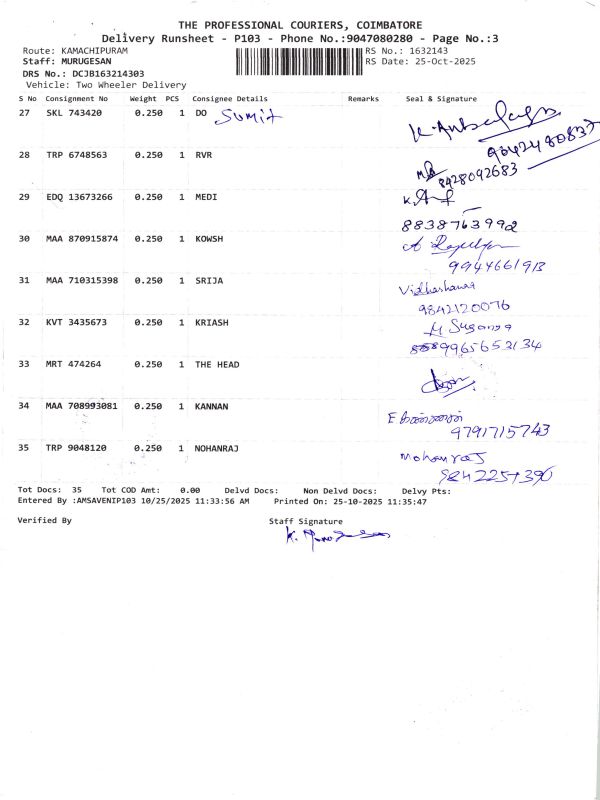 THE PROFESSIONAL COURIERS, COIMBATORE
Delivery Runsheet - P103 - Phone No.:9047080280 - Page No.:3
Route: KAMACHIPURAM RS No.: 1632143
Staff: MURUGESAN RS Date: 25-Oct-2025
DRS No.: DCJB163214303
Vehicle: Two Wheeler Delivery
S No Consignment No Weight PCS Consignee Details Remarks Seal & Signature
27 SKL 743420 0.250 1 DO Sumit
9042480837
28 TRP 6748563 0.250 1 RVR
8428092683
29 EDQ 13673266 0.250 1 MEDI
8838763992
30 MAA 870915874 0.250 1 KOWSH
9944661913
31 MAA 710315398 0.250 1 SRIJA
9842120076
32 KVT 3435673 0.250 1 KRIASH M Suganya
9965653134
33 MRT 474264 0.250 1 THE HEAD
34 MAA 708993081 0.250 1 KANNAN E கண்ணன்
9791715743
35 TRP 9048120 0.250 1 NOHANRAJ Mohanraj
Tot Docs: 35 Tot COD Amt: 0.00 Delvd Docs: Non Delvd Docs: Delvy Pts:
Entered By :AMSAVENIP103 10/25/2025 11:33:56 AM Printed On: 25-10-2025 11:35:47
Verified By Staff Signature